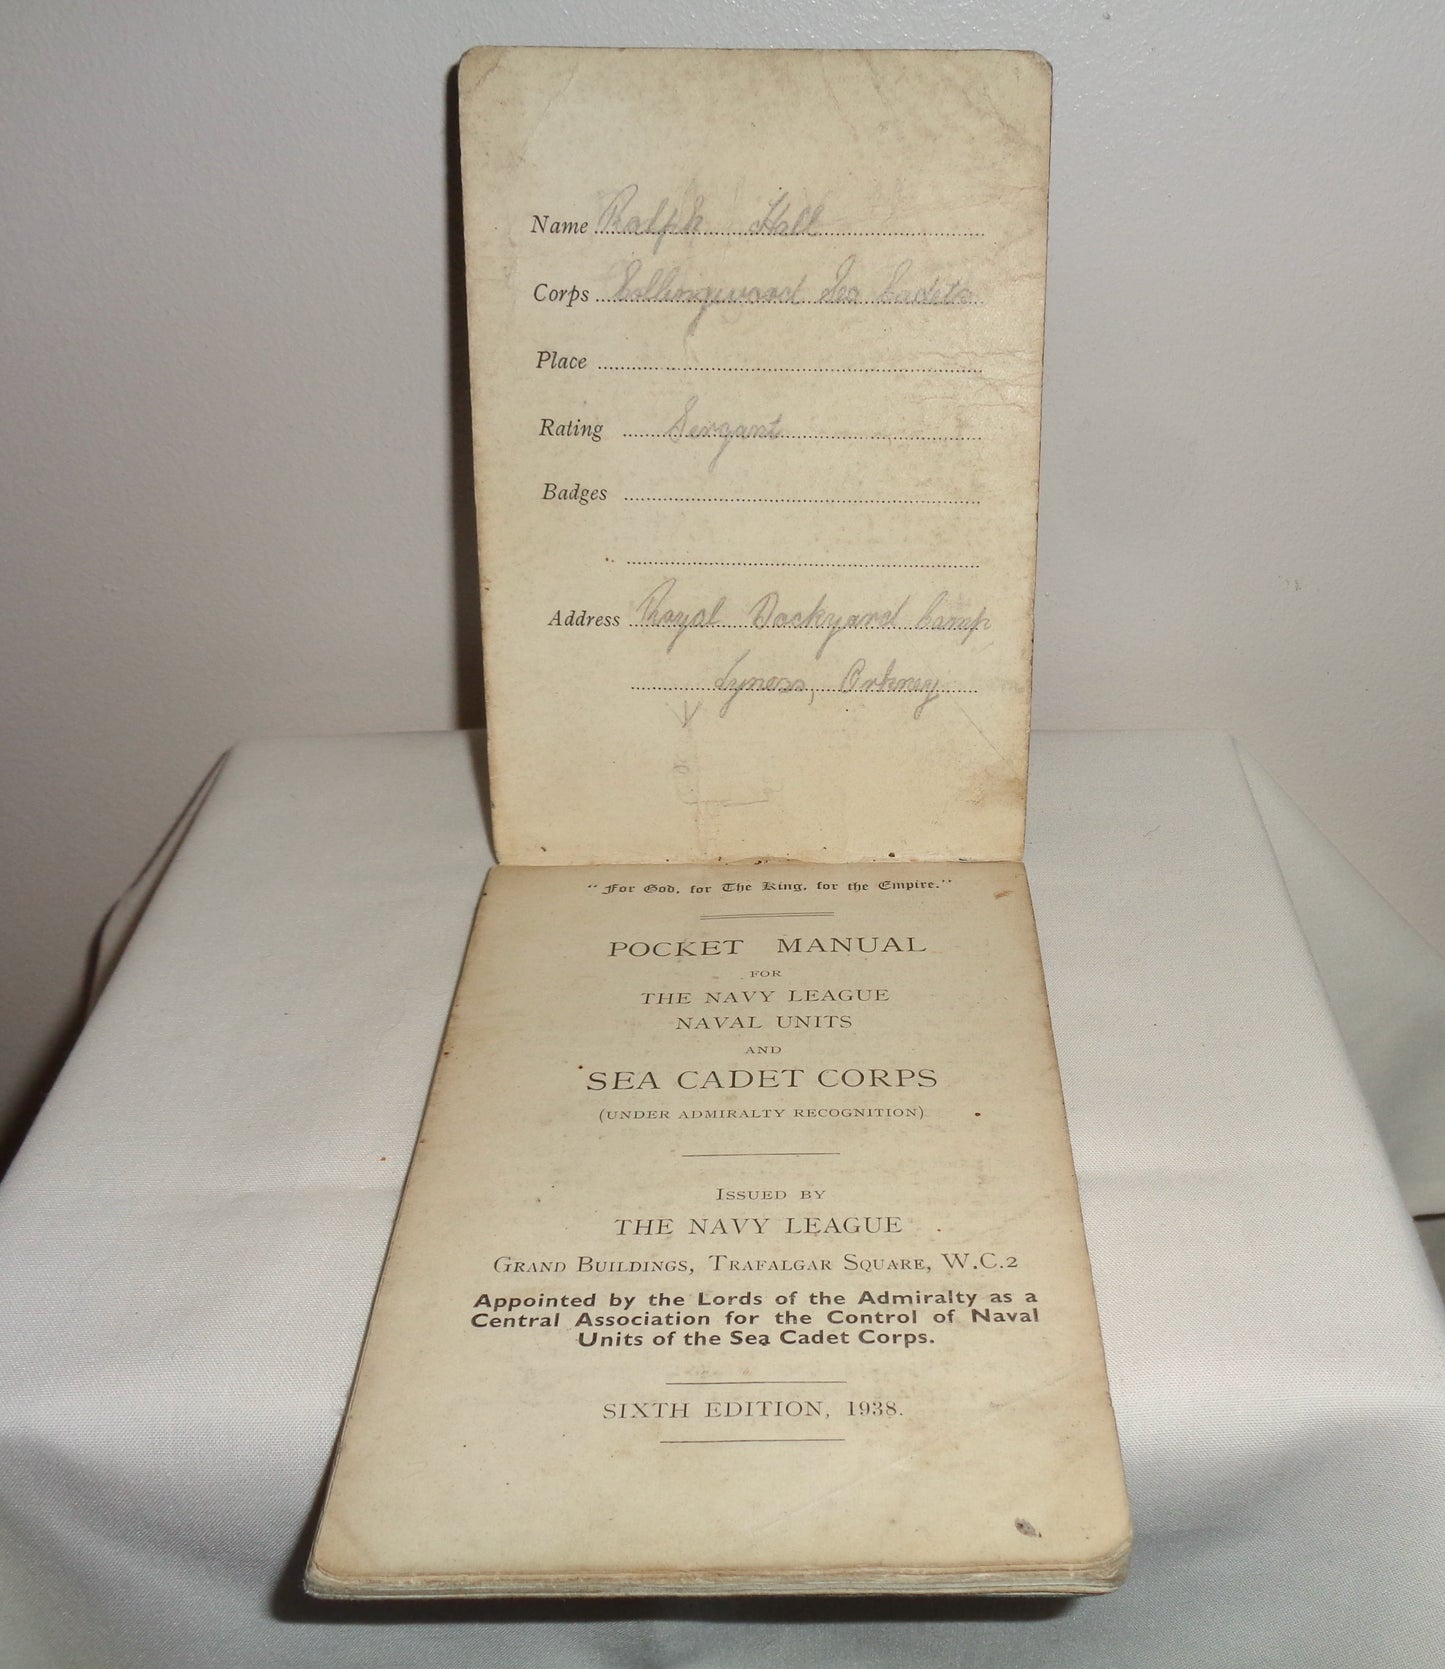 Name Ralph Hall
Corps Collingwood Sea Cadets
Place
Rating Sergant
Badges
Address Royal Dockyard Camp
Lyness, Orkney
"For God, for The King, for the Empire."
POCKET MANUAL
FOR
THE NAVY LEAGUE
NAVAL UNITS
AND
SEA CADET CORPS
(UNDER ADMIRALTY RECOGNITION)
ISSUED BY
THE NAVY LEAGUE
GRAND BUILDINGS, TRAFALGAR SQUARE, W.C.2
Appointed by the Lords of the Admiralty as a
Central Association for the Control of Naval
Units of the Sea Cadet Corps.
SIXTH EDITION, 1938.